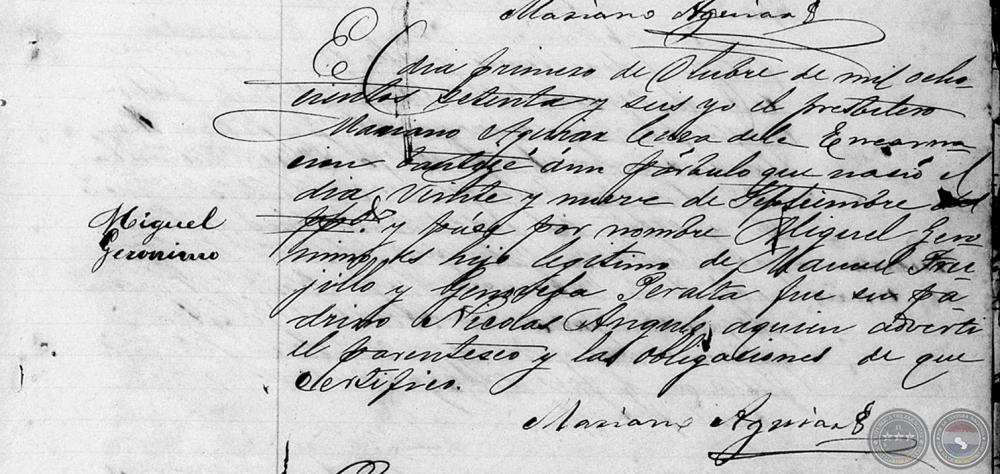 Mariano Aguiar
El dia primero de Otubre de mil ocho-
cientos setenta y seis yo el presbitero
Mariano Aguiar de la Encarna-
cion bautizé á un párbulo que nasió el
dia Vinte y nueve de Septiembre
y púse por nombre Miguel Gero
nimo, es hijo legitimo de Manuel Tru-
jillo y Genoveba Peralta fue su pa-
drino Nicolas Angulo, aquien adverti
el parentesco y las obligasiones de que
certifico.
Miguel
Geronimo
Mariano Aguiar